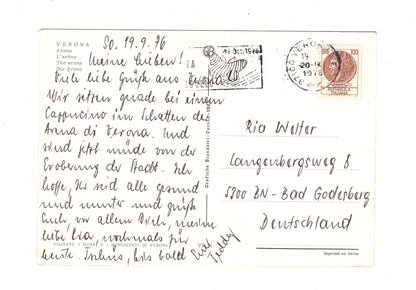 VERONA
Arena
L'arène
The arena
Die Arena
So. 19.9.76
Meine Lieben!
Viele liebe Grüße aus Verona!
Wir sitzen gerade bei einem
Cappuccino im Schatten der
Arena di Verona. Und
sind jetzt müde von der
Eroberung der Stadt. Ich
hoffe, Ihr seid alle gesund
und munter und grüße
Euch vor allem Dich, meine
liebe Ria, nochmals für
heute. Tschüss, bis bald
Eure
Teddy
VISITATE I MUSEI E I MONUMENTI DI VERONA
VERONA
20-IX
1976
100
Ria Welter
Langenbergsweg 8
5300 BN-Bad Godesberg
Deutschland
Imprimé en Italie